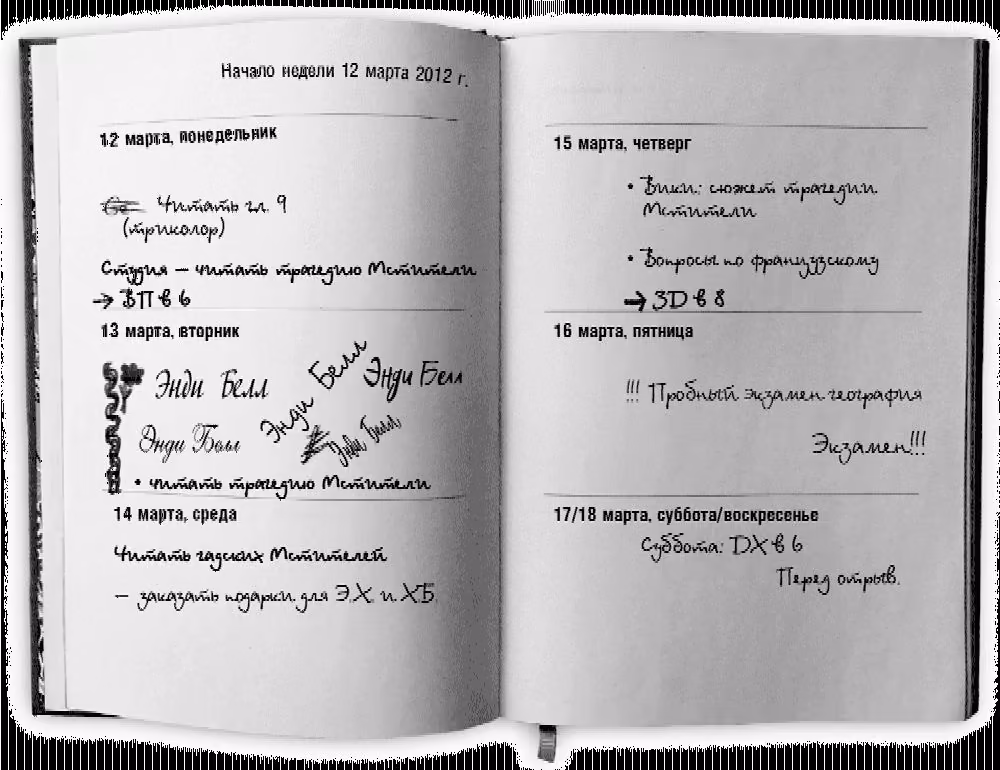 Начало недели 12 марта 2012 г.
12 марта, понедельник
Читать гл. 9
(триколор)
Студия — читать трагедию Мстители
→ ВП в 6
13 марта, вторник
Энди Белл
Энди Белл
Энди Белл
Энди Белл
Энди Белл
• читать трагедию Мстители
14 марта, среда
Читать гадских Мстителей
— заказать подарки для Э.Х. и ХБ.
15 марта, четверг
• Вики: сюжет трагедии
Мстители
• Вопросы по французскому
→ 3D в 8
16 марта, пятница
!!! Пробный экзамен география
Экзамен!!!
17/18 марта, суббота/воскресенье
Суббота: DX в 6
Перед отрыв.